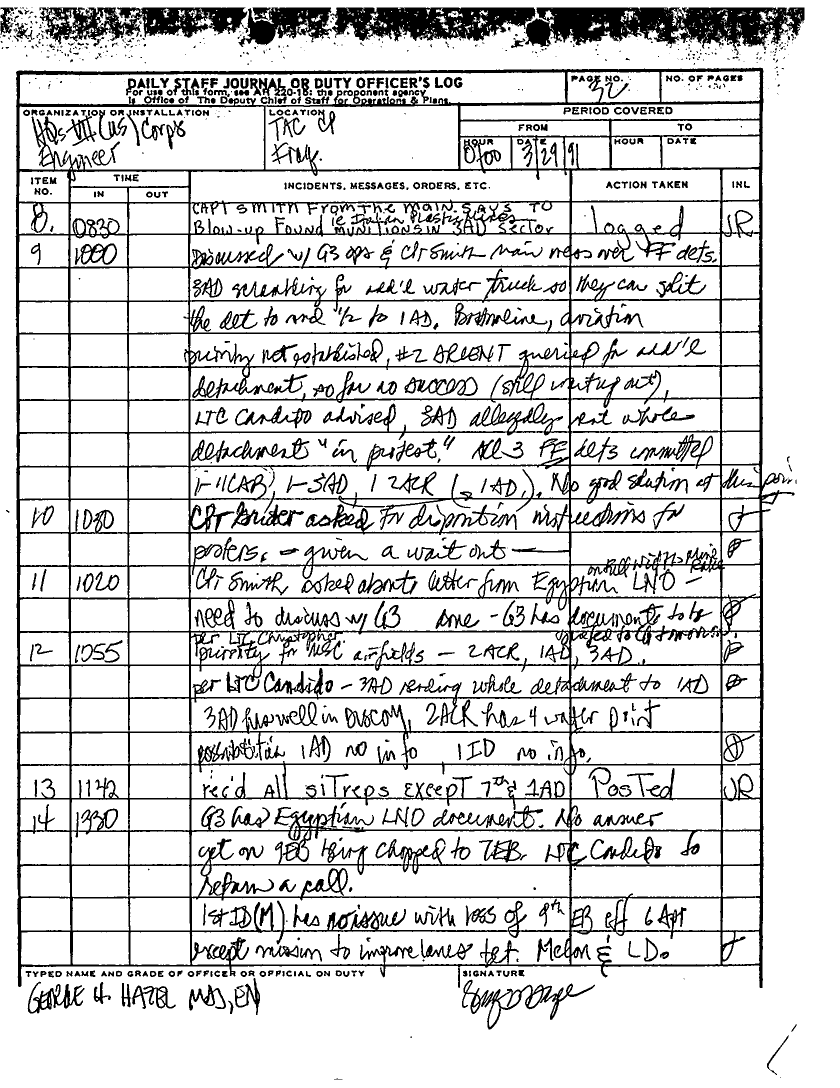 DAILY STAFF JOURNAL OR DUTY OFFICER'S LOG
For use of this form, see AR 220-15; the proponent agency
is Office of The Deputy Chief of Staff for Operations & Plans.
PAGE NO.
32
NO. OF PAGES
ORGANIZATION OR INSTALLATION
HQs VII (US) Corps
Engineer
LOCATION
TAC CP
Iraq
PERIOD COVERED
FROM
TO
HOUR
0700
DATE
3/29/91
HOUR
DATE
ITEM NO.
TIME
IN
OUT
INCIDENTS, MESSAGES, ORDERS, ETC.
ACTION TAKEN
INL
8. 0830 CAPT SMITH From The Main SAYS TO
ie Italian Plastic Mines
Blow-up Found MUNITIONS IN 3AD Sector logged JR
9 1000 Discussed w/ G3 ops & CPT Smith main over FF dets.
3AD scrambling for add'l water truck so they can split
the det to send 1/2 to 1AD. Bottomline, aviation
priority not established, #2 ARCENT queried for add'l
detachment, so far no success (still waiting out),
LTC Candido advised, 3AD allegedly sent whole
detachment "in protest." All 3 FF dets committed
1-11(CAB), 1-3AD, 1 2ACR (→ 1AD). No good solution at this point
10 1030 CPT asked for disposition instructions for
— given a wait out —
11 1020 CPT Smith, asked about letter from Egyptian LNO —
need to discuss w/ G3 done - G3 has documents to be
per LTC Christopher
12 1055 priority for MSC airfields — 2ACR, 1AD, 3AD.
per LTC Candido — 3AD sending whole detachment to 1AD
3AD has well in DISCOM, 2ACR has 4 water point
possibilities, 1AD no info, 1ID no info.
13 1142 rec'd All siTreps Except 7th & 1AD PosTed JR
14 1330 G3 has Egyptian LNO document. No answer
yet on 9EB being chopped to 7EB. LTC Candido to
return a call.
1st ID(M) has no issue with loss of 9th EB eff 6 Apr
except mission to improve lanes bet. Melon & LD.
TYPED NAME AND GRADE OF OFFICER OR OFFICIAL ON DUTY
GEORGE H. HAZEL MAJ, EN
SIGNATURE